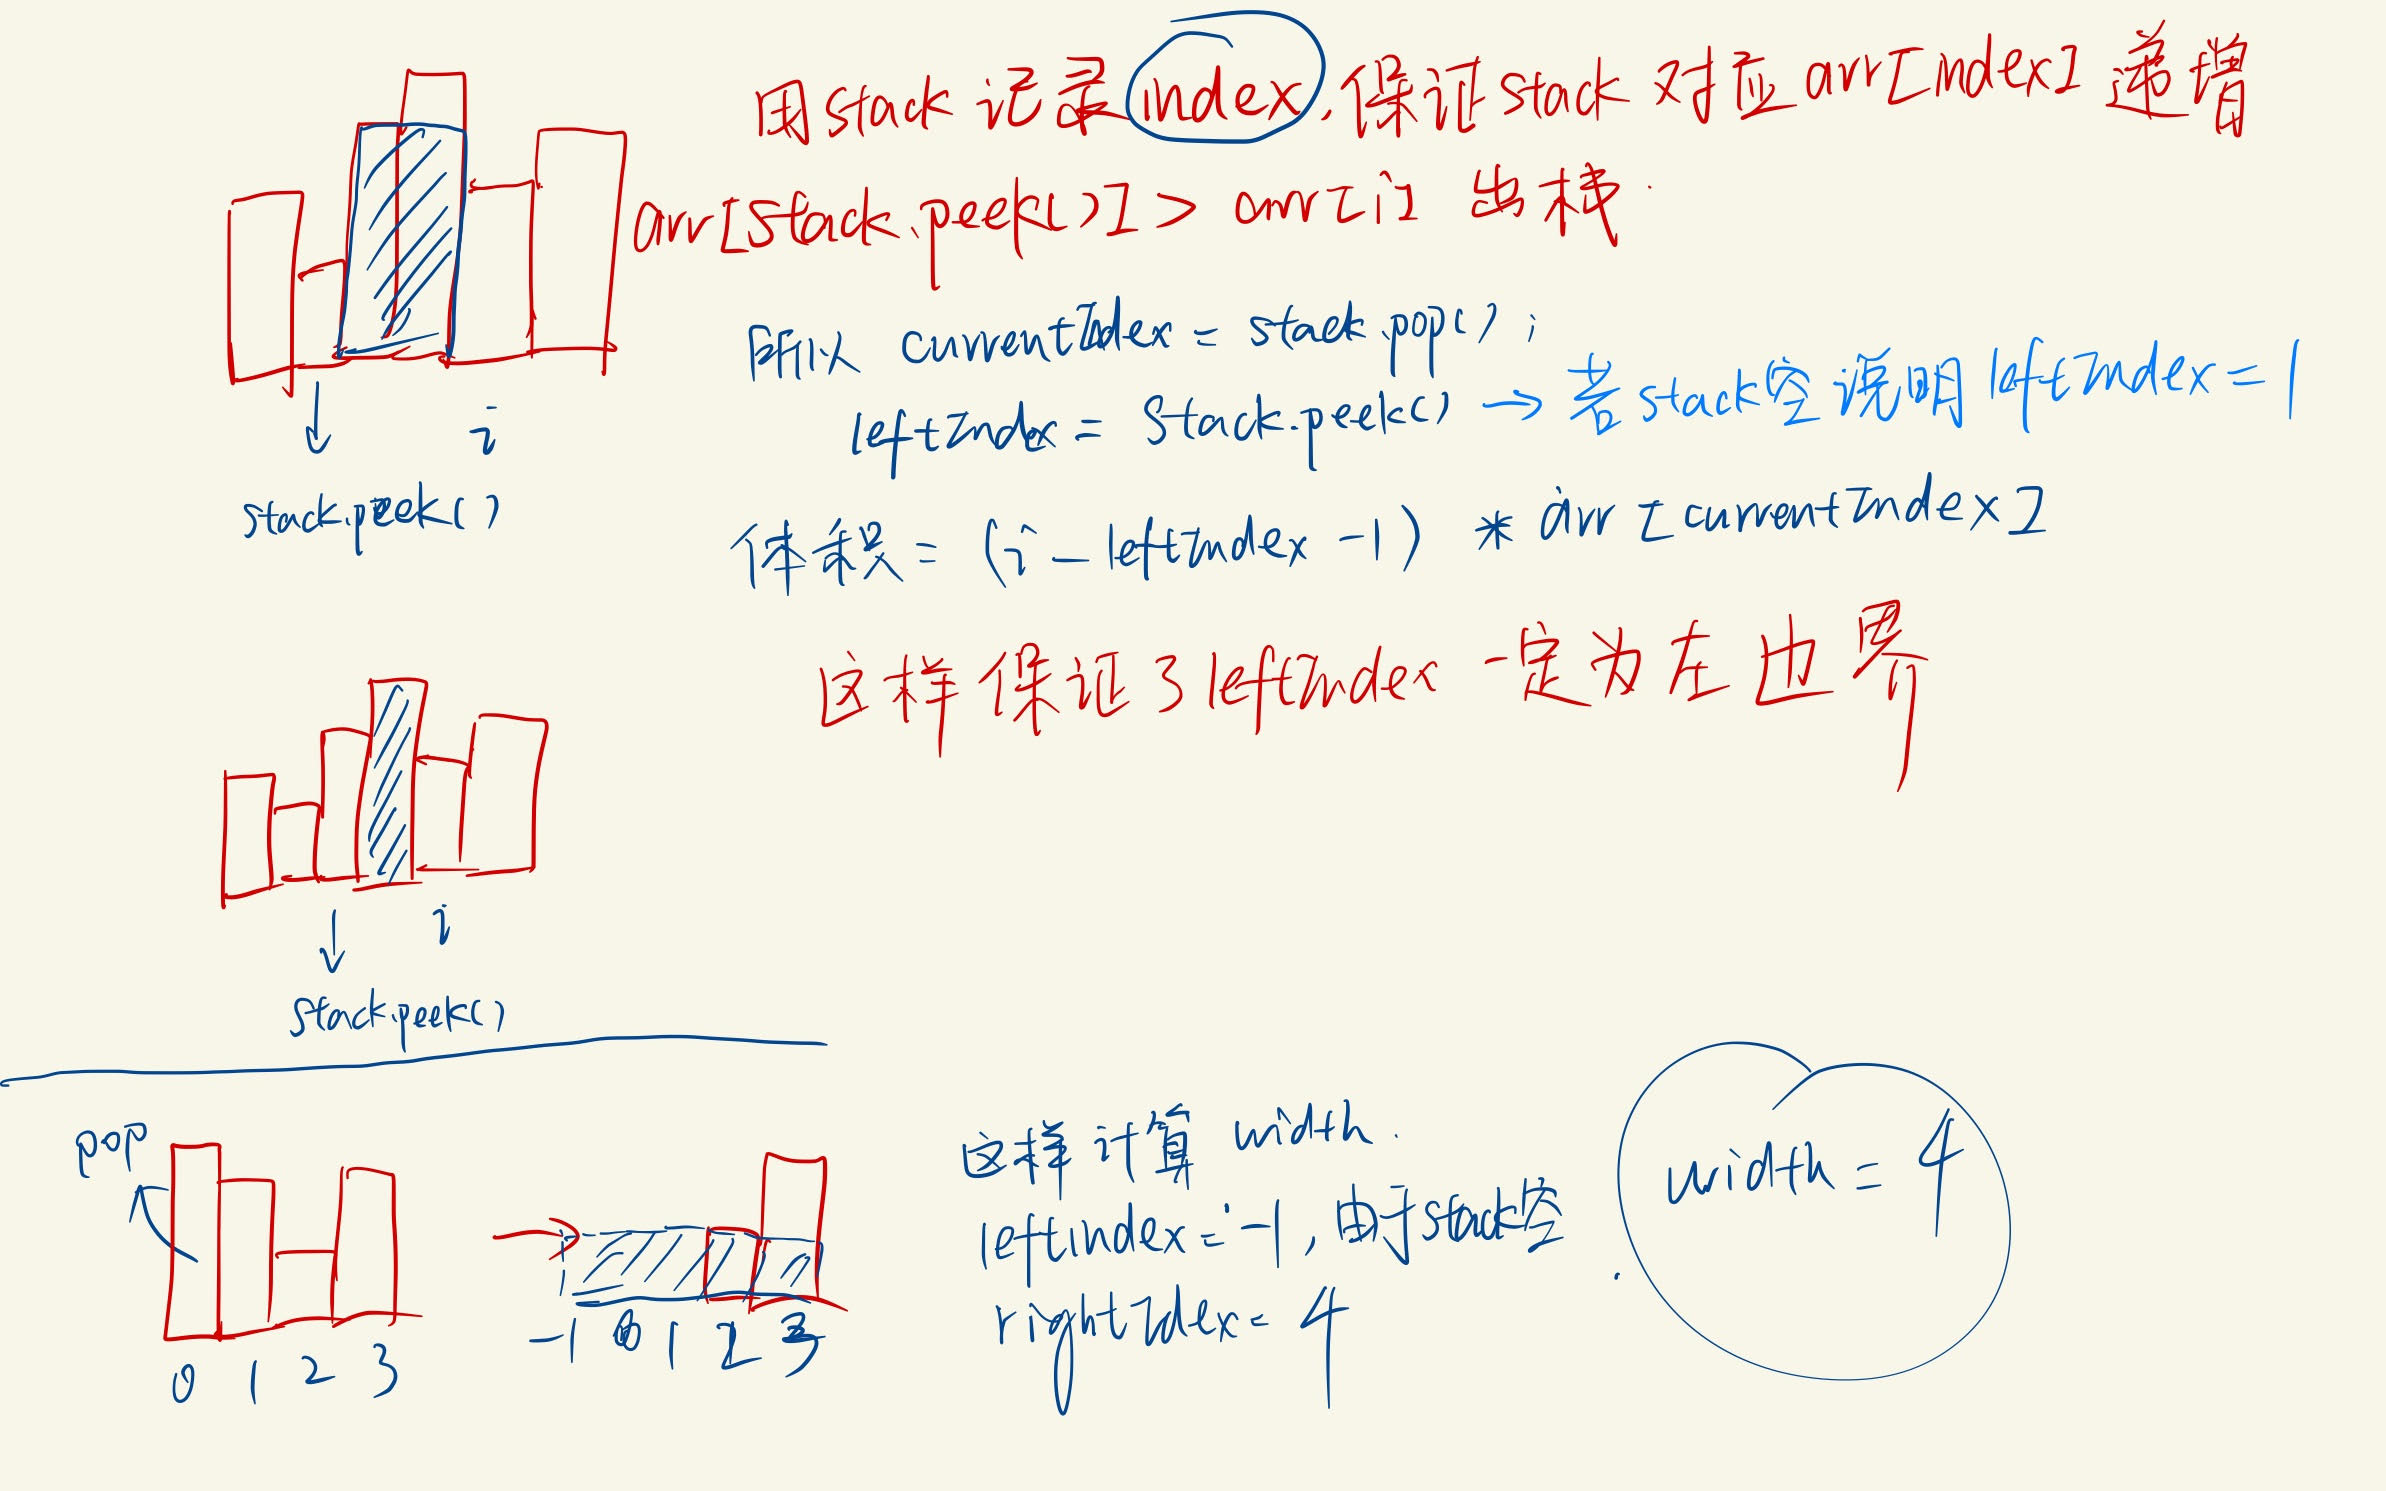 用stack 记录index,保证stack 对应 arr[index] 递增
arr[stack.peek()] > arr[i] 出栈.
所以 currentIndex = stack.pop();
leftIndex = stack.peek() → 若stack空 说明leftIndex=1
i
stack.peek()
体积 = (i - leftIndex -1) * arr[currentIndex]
这样保证了leftIndex 一定为左边界
i
stack.peek()
pop
0 1 2 3
-1 0 1 2 3
这样计算 width.
leftindex = -1, 由于stack空.
rightIdex = 4
width = 4